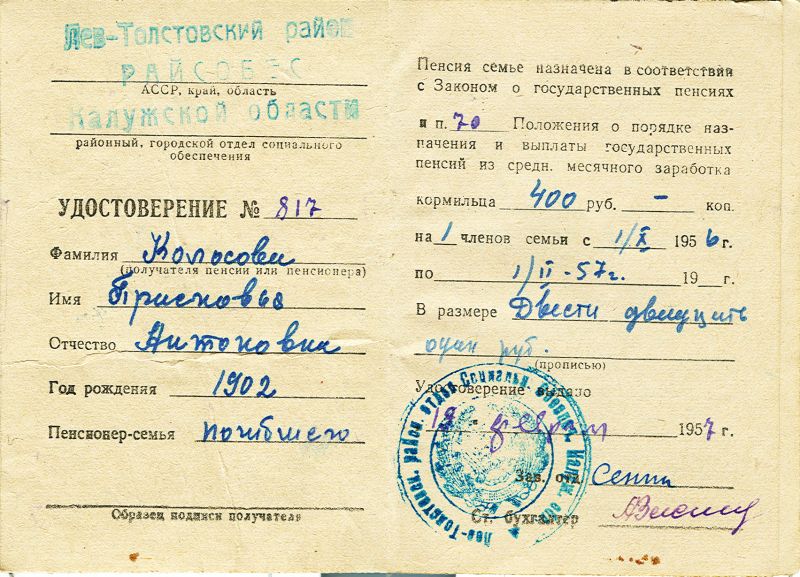 Лев-Толстовский район
РАЙСОБЕС
АССР, край, область
Калужской области
районный, городской отдел социального
обеспечения
УДОСТОВЕРЕНИЕ № 817
Фамилия Колосова
(получателя пенсии или пенсионера)
Имя Прасковья
Отчество Антоновна
Год рождения 1902
Пенсионер-семья погибшего
Образец подписи получателя
Пенсия семье назначена в соответствии
с Законом о государственных пенсиях
и п. 70 Положения о порядке наз-
начения и выплаты государственных
пенсий из средн. месячного заработка
кормильца 400 руб. — коп.
на 1 членов семьи с 1/X 1956 г.
по 1/II-57г. 19 г.
В размере Двести двадцать
один руб.
(прописью)
Удостоверение выдано
февраля 1957 г.
Зав. отд.
Ст. бухгалтер
Лев-Толстовск. район. отдел Социальн.